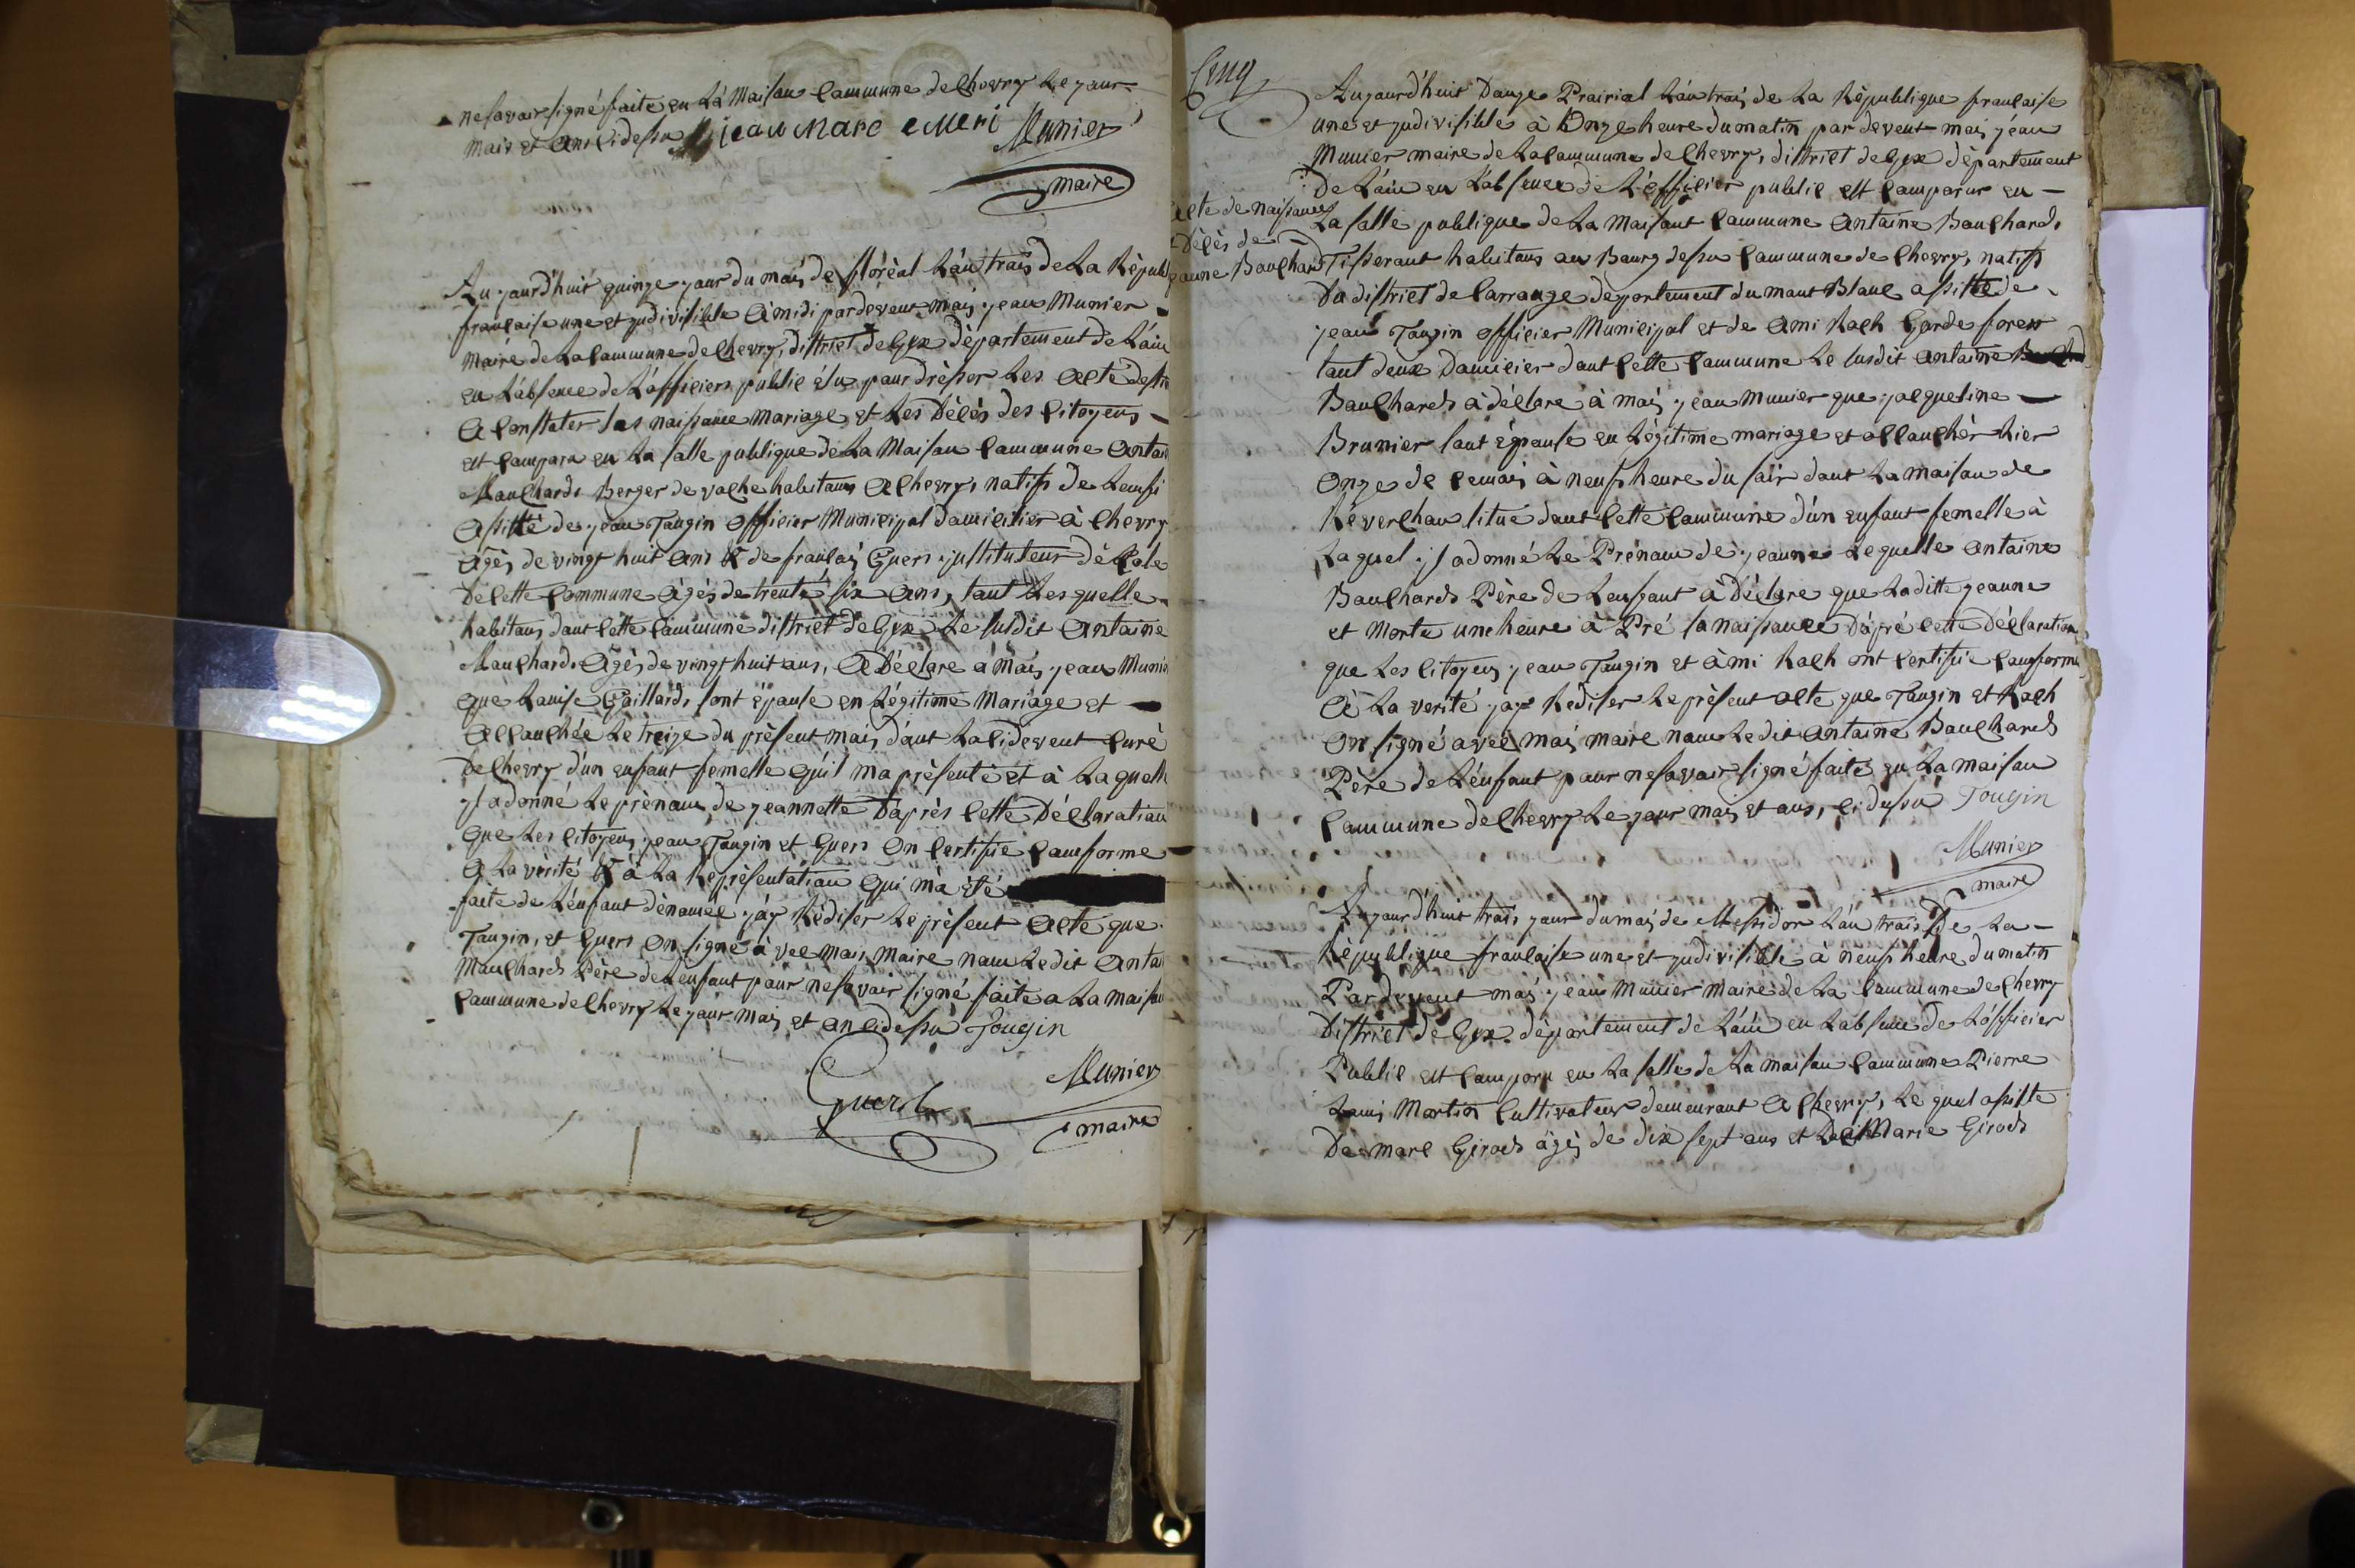 ne savoir signé faite en la Maison Commune de Chevry le jour
mois et ans ci dessu jean Marc Emeri Munier
maire
Aujourd'huit quinze jour du mois de floréal l'an trois de La Répub
française une et jndivisible à midi pardevent mois jean Munier
Maire de La commune de Chevry, district de Gex département de L'ain
en L'absence de L'officiers public élus pour drèsser Les acte destin
a constater Les naissance mariage et Les Décès des Citoyens
est compara en La salle publique de La Maison Commune Antoi
Mauchard, Berger de vache habitans a Chevry, natifs de
assitté de jean Tougin officier Municipal domicilier à Chevry
âgés de vingt huit ans & de françois Guers jnstituteur
De cette Commune âgés de trente six ans, tout Les quelle
habitans dant cette commune district de Gex, Le susdit Antoine
Mauchard, âgés de vingt huit ans, a Déclare à mois jean Munie
que Louise Gaillard, sont épouse en Légitime Mariage et
accouchée Le treize du présent mois, dant La cidevent curè
de Chevry d'un enfant femelle qu'il m'a présenté et à Laquell
jl a donné Le prénom de jeannette D'après cette Déclaration
que Les citoyens jean Tougin et Guers on certifie comforme
a La vérité & à La Représentation qui m'a été
faite de L'enfant dénomée j'ay Rédiser Le présent acte que
Tougin, et Guers on signé à vec mois Maire nom Ledit Antoi
Mauchard Père de L'enfant pour ne savoir signé faite a La maison
Commune de Chevry Le jour mois et an ci dessu Tougin
Guers Munier
maire
Cinq
Acte de naissance
Décès de
jeanne Bouchard
Aujourd'huit Douze Prairial L'an trois de La République française
une et jndivisible à Onze heure du matin par devent mois jean
Munier maire de La commune de Chevry, district de Gex département
De L'ain en L'absence de L'officier public est comparus en
La salle publique de La Maisont Commune Antoine Bouchard,
Tisserant habitans au Bourg dessu Commune de Chevry, natifs
Du district de Carrouge departement du mont Blanc assitté de
jean Tougin officier Municipal et de Ami Roch Garde forest
tout deux Domicier dant cette Commune Le susdit Antoine
Bouchard à déclare à mois jean Munier que jacqueline
Brunier sont épouse en Légitime mariage et accouchér hier
Onze de ce mois à neufs heure du soir dant La maison de
Réverchon situé dant cette commune d'un enfant femelle à
Laquel jl a donné Le Prénom de jeanne Lequelle Antoine
Bouchard Père de L'enfant à Déclare que La ditte jeanne
et Morte une heure à Pré sa naissance D'apré cette Déclaration
que Les citoyens jean Tougin et àmi Roch ont certifie comforme
à La verité j'ay Rediser Le présent acte que Tougin et Roch
On signé avec mois maire nom Ledit Antoine Bouchard
Père de L'enfant pour ne savoir signé faite en La maison
Commune de Chevry Le jour mois et ans, ci dessu Tougin
Munier
maire
Aujourd'huit trois jour du mois de Messidor L'an trois De La
République française une et jndivisible à neufs heure du matin
Pardevent mois jean Munier Maire de La Commune de Chevry
District de Gex département de L'ain en L'absence de L'officier
Public est comparu en La salle de La maison Commune Pierre
Louis Martin Cultivateur demeurant a Chevry, Le quel assitte
De Marc Girod âgés de dix sept ans et De Marie Girod